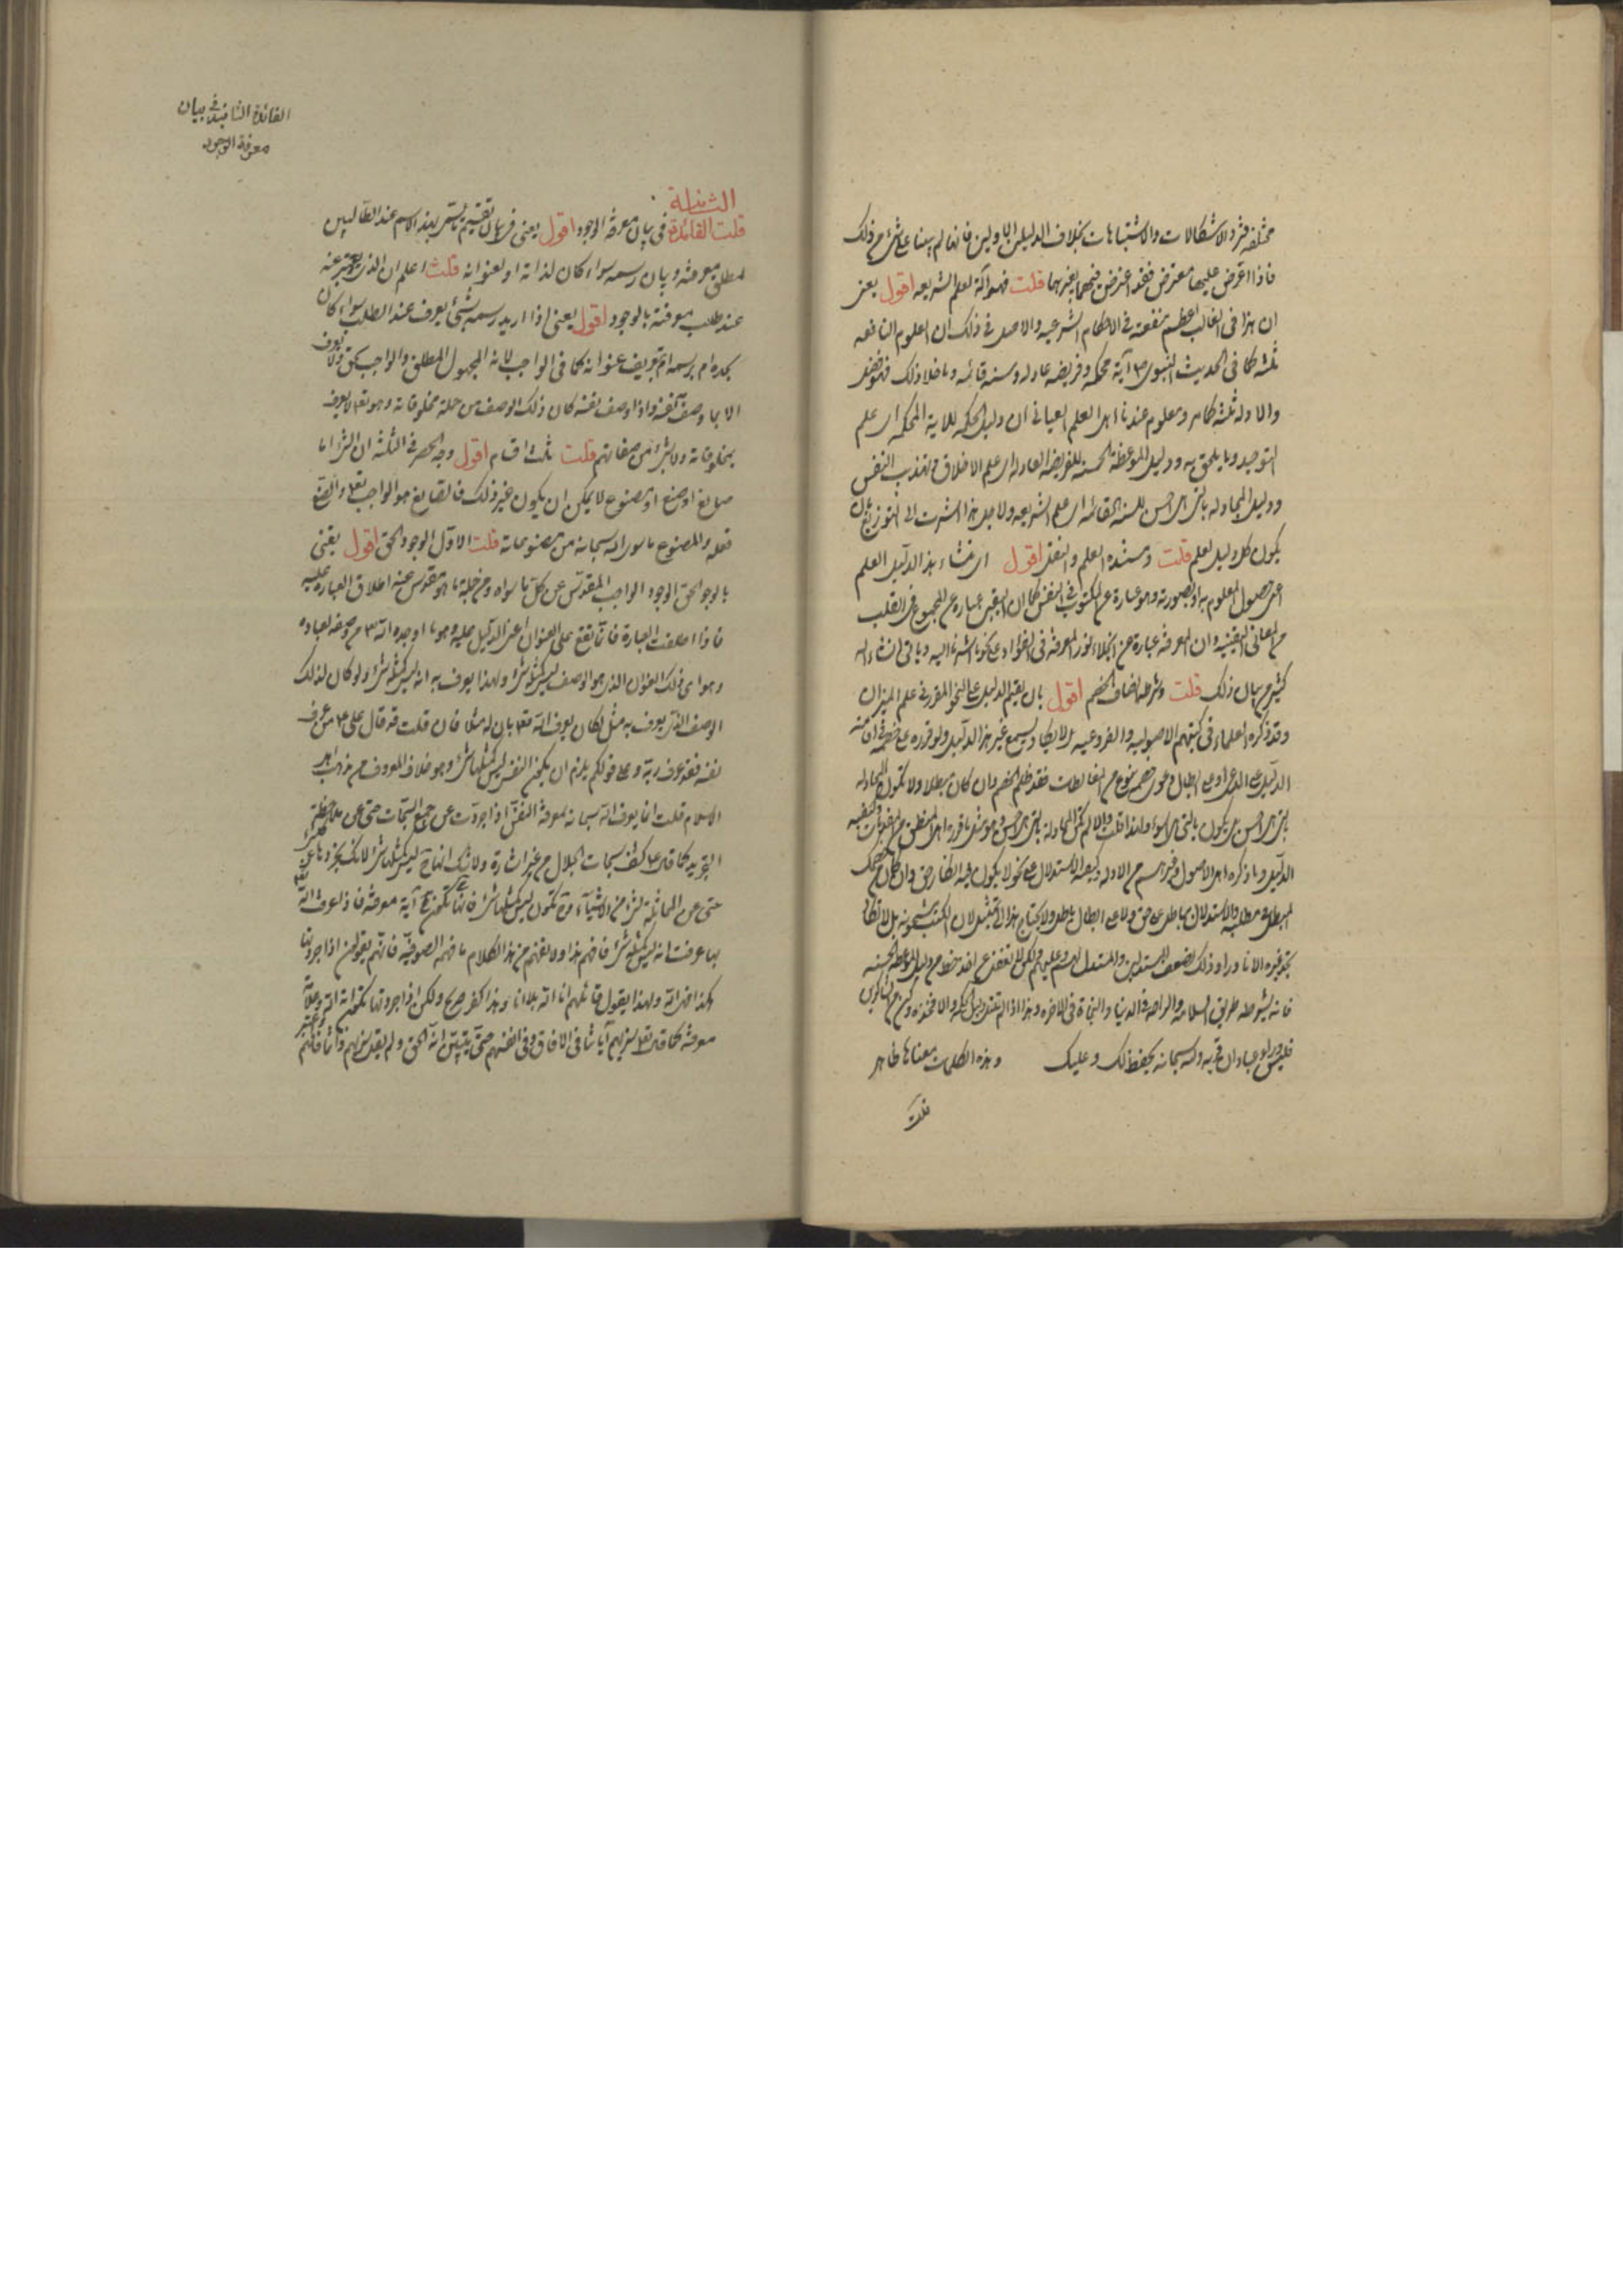 مختلفة فترد الاشكالات والاشتباهات بخلاف الدليلين الاولين فانهما لم يبينا على شئ من ذلك
فاذا اعترض عليهما معترض فقد اعترض فيهما بغيرهما قلت فهو آلة لعلم الشريعه اقول يعنى
ان هذا فى الغالب اعظم منفعته فى الاحكام الشرعيه والاصل فى ذلك ان العلوم النافعه
ثلثه كما فى الحديث النبوى ص آية محكمه وفريضه عادله وسنه قائمه وما خلا ذلك فهو فضل
والادله ثلثه كما مر ومعلوم عندنا اهل العلم العيانى ان دليل الحكمه للاية المحكمه اى علم
التوحيد وما يلحق به ودليل الموعظة الحسنه للفريضه العادله اى علم الاخلاق وتهذيب النفس
ودليل المجادله بالتى هى احسن للسنه القائمه اى علم الشريعه ولاجل هذا اشرت الى التوزيع بان
يكون كل دليل لعلم قلت ومستنده العلم والنقل اقول اى منشاء هذا الدليل العلم
اعنى حصول المعلوم به او بصورته وهو عبارة عن المكتوب فى النفس كما ان اليقين عبارة عن المجموع فى القلب
من المعانى اليقينيه وان المعرفه عبارة عن انجلاء نور المعرفة فى الفؤاد على نحو ما اشرنا اليه وياتى انشاء الله
كثير من بيان ذلك قلت وشرطه انصاف الخصم اقول بان يقيم الدليل على النحو المقرر فى علم الميزان
وقد ذكره العلماء فى كتبهم الاصوليه والفروعيه بل لا يكاد يسمع غير هذا الدليل ولو قرره على خصمه
الدليل على المدعى او على ابطال دعوى خصمه بنوع من المغالطات فقد ظلم الخصم وان كان مبطلا ولا تكون المجادله
بالتى هى احسن بل يكون بالتى هى اسوء ولهذا قلت والا لم تكن المجادلة بالتى هى احسن
الدليل وما ذكره اهل الاصول وغيرهم من الادله وكيفية الاستدلال على نحو لا يكون فيه انكار حق وان كان من خصمك
المبطل فى مطلبه والاستدلال بباطل على حق ولا على ابطال باطل ولا يحتاج هذا الى تمثيل لان الكتب مشحونه بل لا تكاد
تجد غيره الا نادرا وذلك لضعف المستدلين والمستدل لهم وعليهم ولكن لا تغفل عن اخذ حظ من دليل الموعظة الحسنه
فانه لشرطه طريق السلامه والراحه فى الدنيا والنجاة فى الاخره وهذا اذا لم تقدر على دليل الحكمه والا فخذه وكن من الشاكرين
فليس وراء عبادان قريه والله سبحانه يحفظ لك وعليك وهذه الكلمات معناها ظاهر
قلت
الفائدة الثانية فى بيان
معرفة الوجود
الثانية
قلت الفائدة فى بيان معرفة الوجود اقول يعنى فى بيان تقسيم ما يسمى بهذا الاسم عند الطالبين
لمطلق معرفته وبيان رسمه سواء كان لذاته او لعنوانه قلت اعلم ان الذى يعبر عنه
عند طلب معرفته بالوجود اقول يعنى اذا اريد رسمه بشئ يعرف عند الطلب سواء كان
بحده ام برسمه ام بتعريف عنوانه كما فى الواجب لانه المجهول المطلق والواجب الحق ولا يعرف
الا بما وصف به نفسه واذا وصف نفسه كان ذلك الوصف من جملة مخلوقاته وهو تعالى لا يعرف
بمخلوقاته ولا بشئ من صفاتهم قلت ثلث اقسام اقول وجه الحصر فى الثلثه ان الشئ اما
صانع او صنع او مصنوع لا يمكن ان يكون غير ذلك فالصانع هو الواجب تعالى والصنع
فعله والمصنوع ما سوى الله سبحانه من مصنوعاته قلت الاول الوجود الحق اقول يعنى
بالوجود الحق الوجود الواجب المقدس عن كل ما سواه ومن جملة ما هو مقدس عنه اطلاق العبارة عليه
فاذا اطلقت العبارة فانما تقع على العنوان اعنى الدليل عليه وهو ما اوجده الله من وصفه لعباده
وهو اى ذلك العنوان الذى هو الوصف ليس كمثله شئ ولهذا يعرف به انه ليس كمثله شئ ولو كان لذلك
الوصف الذى يعرف به مثل لكان يعرف الله تعالى بان له مثلا فان قلت قد قال على ع من عرف
نفسه فقد عرف ربه وعلى قولكم يلزم ان يكون النفس ليس كمثلها شئ وهو خلاف المعروف من مذهب اهل
الاسلام قلت انما يعرف الله سبحانه بمعرفة النفس اذا جردت عن جميع السبحات حتى عن ملاحظة
التجريد كما قال ع كشف سبحات الجلال من غير اشارة ولا شك انها ح ليس كمثلها شئ لانك تجردها عن كل شئ
حتى عن المماثلة لشئ من الاشياء فتكون ليس كمثلها شئ فانها تكون ح آية معرفته فاذا عرف الله
بها عرفت انه ليس كمثله شئ فافهم هذا ولا تفهم من هذا الكلام ما فهمه الصوفيه فانهم يقولون اذا جردتها
هكذا فهى الله ولهذا يقول قائلهم انا الله بلا انا وهذا كفر صريح ولكن اذا جردتها تكون آية الله وعلامة
معرفته كما قال تعالى سنريهم آياتنا فى الافاق وفى انفسهم حتى يتبين لهم انه الحق ولم يقل سنريهم ذاتنا فافهم